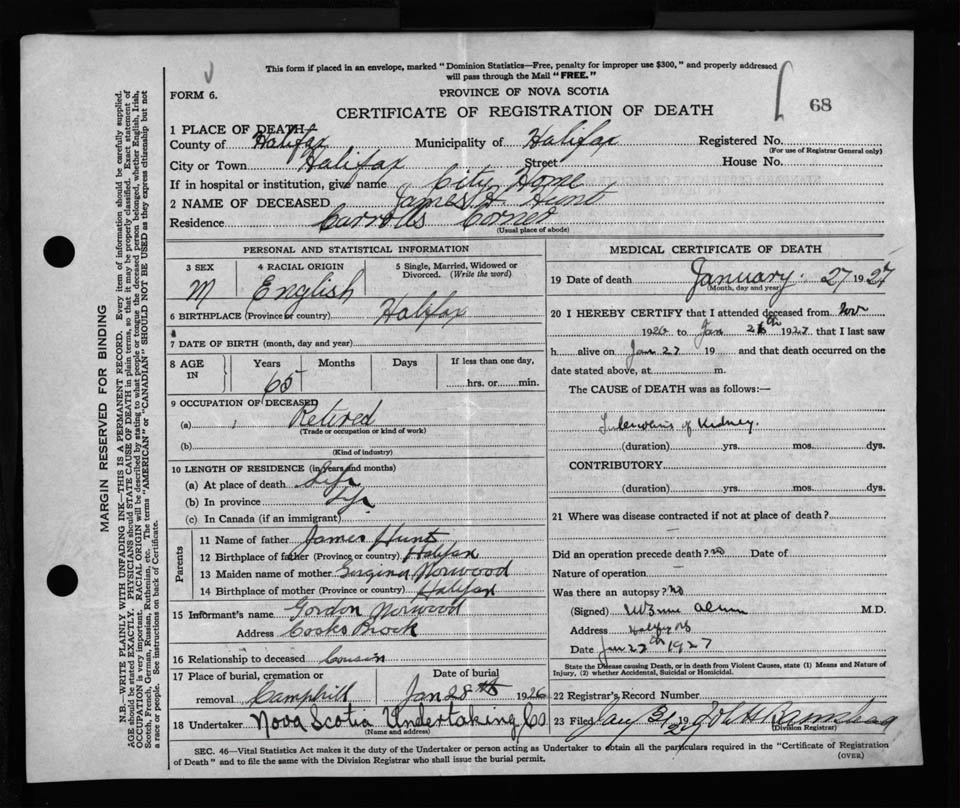 This form if placed in an envelope, marked "Dominion Statistics—Free, penalty for improper use $300," and properly addressed
will pass through the Mail "FREE."
FORM 6.
PROVINCE OF NOVA SCOTIA
68
CERTIFICATE OF REGISTRATION OF DEATH
1 PLACE OF DEATH
County of Halifax Municipality of Halifax Registered No.
(For use of Registrar General only)
City or Town Halifax Street House No.
If in hospital or institution, give name City Home
2 NAME OF DECEASED James Hunt
Residence Carrolls Corner
(Usual place of abode)
PERSONAL AND STATISTICAL INFORMATION
3 SEX 4 RACIAL ORIGIN 5 Single, Married, Widowed or
Divorced. (Write the word)
M English
6 BIRTHPLACE (Province or country) Halifax
7 DATE OF BIRTH (month, day and year)
8 AGE IN Years Months Days If less than one day,
65 hrs. or min.
9 OCCUPATION OF DECEASED
(a) Retired
(Trade or occupation or kind of work)
(b)
(Kind of industry)
10 LENGTH OF RESIDENCE (in years and months)
(a) At place of death Life
(b) In province Life
(c) In Canada (if an immigrant)
Parents
11 Name of father James Hunt
12 Birthplace of father (Province or country) Halifax
13 Maiden name of mother Norwood
14 Birthplace of mother (Province or country) Halifax
15 Informant's name Gordon Norwood
Address Cooks Brook
16 Relationship to deceased Cousin
17 Place of burial, cremation or Date of burial
removal Camphill Jan 28th 1926
18 Undertaker Nova Scotia Undertaking Co.
(Name and address)
MEDICAL CERTIFICATE OF DEATH
19 Date of death January 27 1927
(Month, day and year)
20 I HEREBY CERTIFY that I attended deceased from Nov
1926 to Jan 26th 1927 that I last saw
h alive on Jan 27 19 and that death occurred on the
date stated above, at m.
The CAUSE of DEATH was as follows:—
Tuberculosis of Kidney.
(duration) yrs. mos. dys.
CONTRIBUTORY
(duration) yrs. mos. dys.
21 Where was disease contracted if not at place of death?
Did an operation precede death? no Date of
Nature of operation
Was there an autopsy? no
(Signed) M.D.
Address Halifax NS
Date Jan 27th 1927
State the Disease causing Death, or in death from Violent Causes, state (1) Means and Nature of
Injury, (2) whether Accidental, Suicidal or Homicidal.
22 Registrar's Record Number
23 Filed Jany 31 1927
(Division Registrar)
SEC. 46—Vital Statistics Act makes it the duty of the Undertaker or person acting as Undertaker to obtain all the particulars required in the "Certificate of Registration
of Death" and to file the same with the Division Registrar who shall issue the burial permit.
(OVER)
MARGIN RESERVED FOR BINDING
N.B.—WRITE PLAINLY WITH UNFADING INK—THIS IS A PERMANENT RECORD. Every item of information should be carefully supplied.
AGE should be stated EXACTLY. PHYSICIANS should STATE CAUSE OF DEATH in plain terms, so that it may be properly classified. Exact statement of
OCCUPATION is very important. RACIAL ORIGIN will be described by stating to what people or tongue the deceased person belonged, whether English, Irish,
Scotch, French, German, Russian, Ruthenian, etc. The terms "AMERICAN" or "CANADIAN" SHOULD NOT BE USED as they express citizenship but not
a race or people. See instructions on back of Certificate.